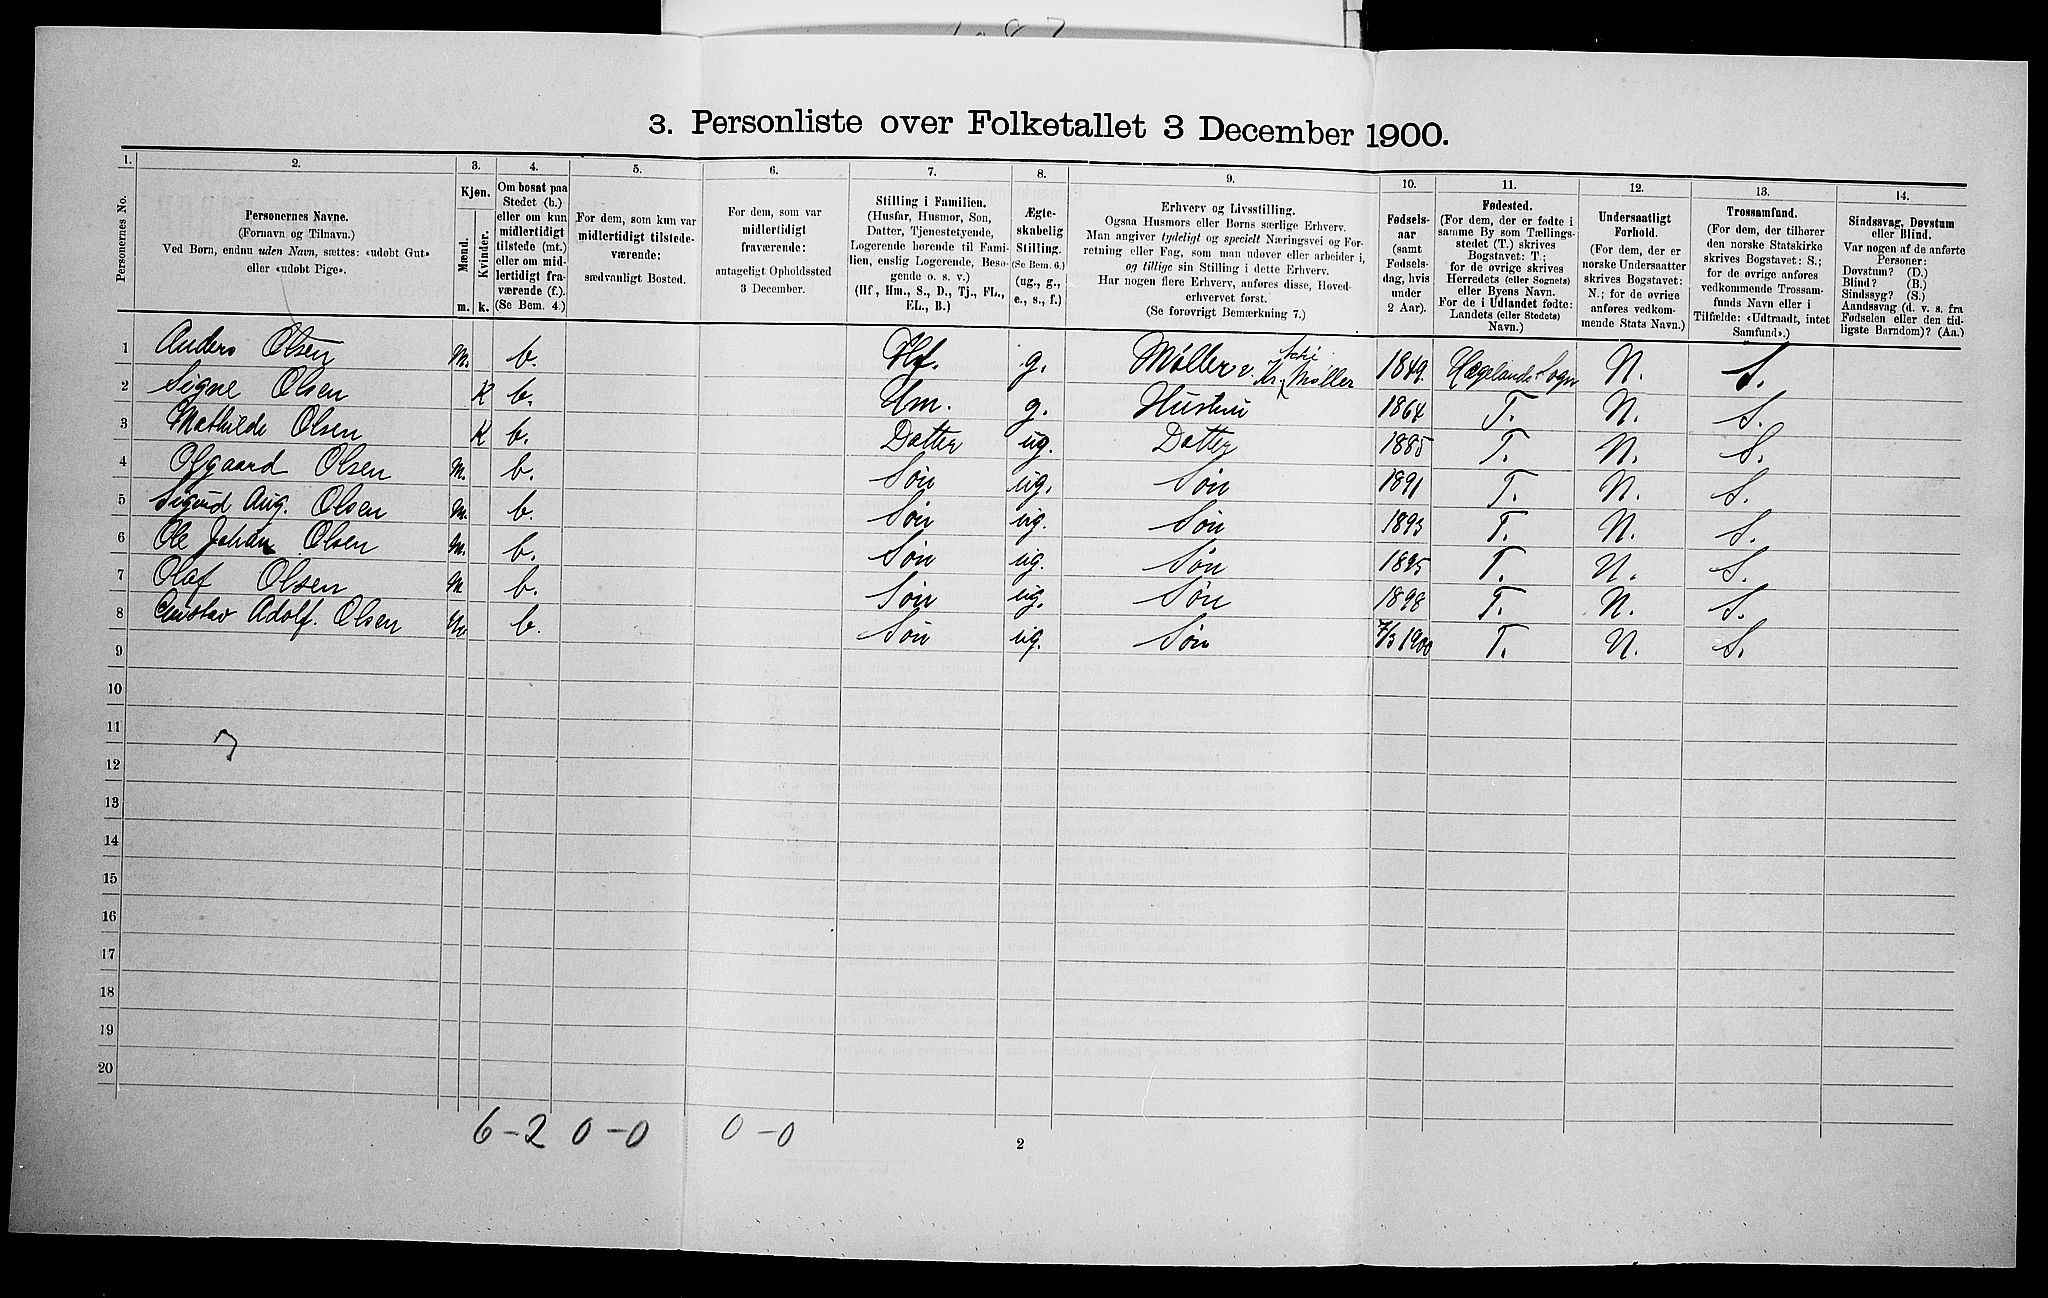 3. Personliste over Folketallet 3 December 1900.
1. 2. 3. 4. 5. 6. 7. 8. 9. 10. 11. 12. 13. 14.
Personernes No.
Personernes Navne.
(Fornavn og Tilnavn.)
Ved Børn, endnu uden Navn, sættes: «udøbt Gut»
eller «udøbt Pige».
Kjøn.
Mænd.
Kvinder.
m. k.
Om bosat paa
Stedet (b.)
eller om kun
midlertidigt
tilstede (mt.)
eller om mid-
lertidigt fra-
værende (f.).
(Se Bem. 4.)
For dem, som kun var
midlertidigt tilstede-
værende:
sædvanligt Bosted.
For dem, som var
midlertidigt
fraværende:
antageligt Opholdssted
3 December.
Stilling i Familien.
(Husfar, Husmor, Søn,
Datter, Tjenestetyende,
Logerende hørende til Fami-
lien, enslig Logerende, Besø-
gende o. s. v.)
(Hf, Hm., S., D., Tj., FL.,
EL., B.)
Ægte-
skabelig
Stilling.
(Se Bem. 6.)
(ug., g.,
e., s., f.)
Erhverv og Livsstilling.
Ogsaa Husmors eller Børns særlige Erhverv.
Man angiver tydeligt og specielt Næringsvei og For-
retning eller Fag, som man udøver eller arbeider i,
og tillige sin Stilling i dette Erhverv.
Har nogen flere Erhverv, anføres disse, Hoved-
erhvervet først.
(Se forøvrigt Bemærkning 7.)
Fødsels-
aar
(samt
Fødsels-
dag, hvis
under
2 Aar).
Fødested.
(For dem, der er fødte i
samme By som Tællings-
stedet (T.) skrives
Bogstavet: T;
for de øvrige skrives
Herredets (eller Sognets)
eller Byens Navn.
For de i Udlandet fødte:
Landets (eller Stedets)
Navn.)
Undersaatligt
Forhold.
(For dem, der er
norske Undersaatter
skrives Bogstavet:
N.; for de øvrige
anføres vedkom-
mende Stats Navn.)
Trossamfund.
(For dem, der tilhører
den norske Statskirke
skrives Bogstavet: S.;
for de øvrige anføres
vedkommende Trossam-
funds Navn eller i
Tilfælde: «Udtraadt, intet
Samfund».)
Sindssvag, Døvstum
eller Blind.
Var nogen af de anførte
Personer:
Døvstum? (D.)
Blind? (B.)
Sindssyg? (S.)
Aandssvag (d. v. s. fra
Fødselen eller den tid-
ligste Barndom)? (Aa.)
1 Anders Olsen m. b. Hf. g. Møller v. Kr. Møller 1849. Hægelands Sogn N. S.
2 Signe Olsen K b. Hm. g. Hustru 1864 T. N. S.
3 Mathilde Olsen K b. Datter ug. Datter 1885 T. N. S.
4 Olgaard Olsen m. b. Søn ug. Søn 1891 T. N. S.
5 Sigurd Aug. Olsen m. b. Søn ug. Søn 1893 T. N. S.
6 Ole Johan Olsen m. b. Søn ug. Søn 1895 T. N. S.
7 Olaf Olsen m b. Søn ug. Søn 1898 T. N. S.
8 Gustav Adolf. Olsen m. b. Søn ug. Søn 7/3 1900 T. N. S.
9
10
11
12
13
14
15
16
17
18
19
20
6-2 0-0 0-0
2